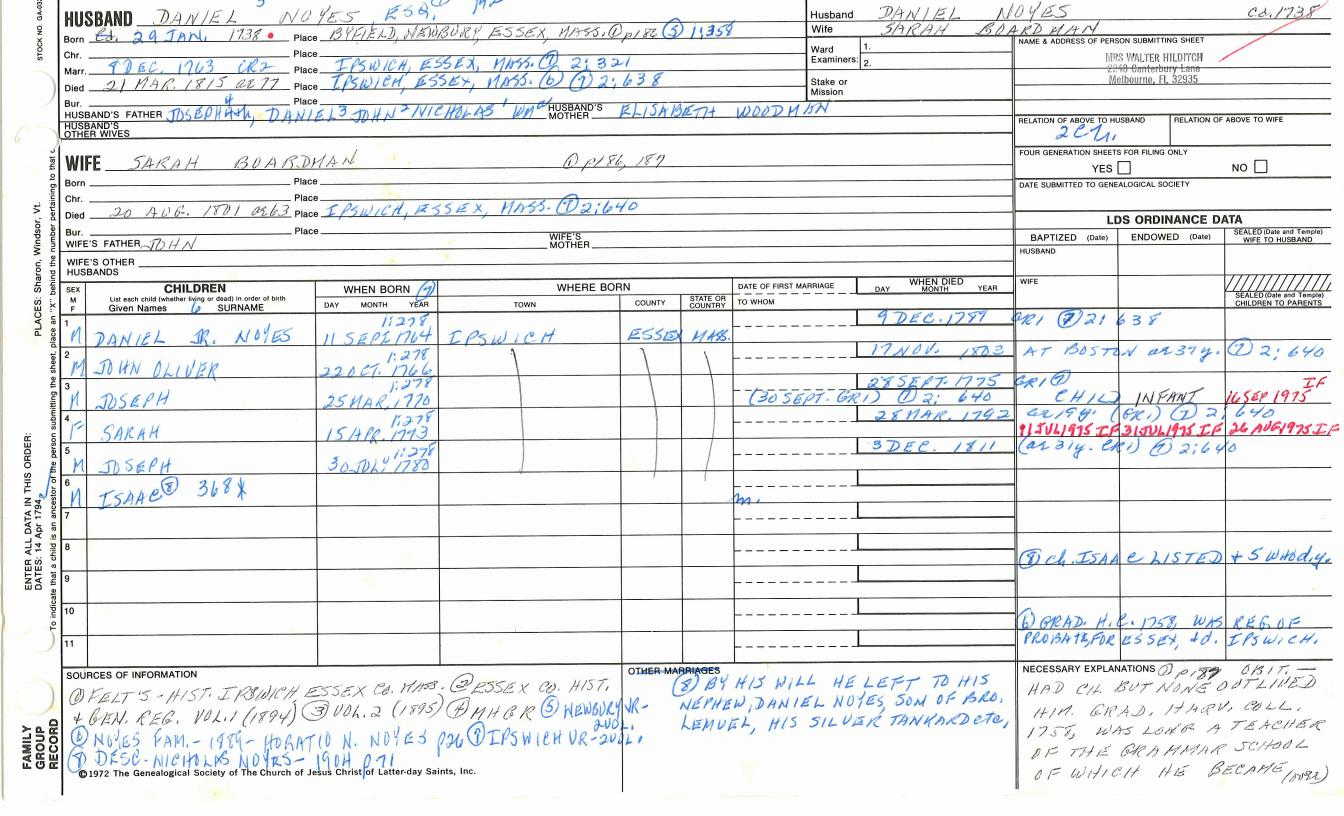 HUSBAND DANIEL NOYES, ESQ.
Born 29 JAN. 1738 Place BYFIELD, NEWBURY, ESSEX, MASS. ① p186 ⑤ 1:358
Chr. Place
Marr. 8 DEC. 1763 CR2 Place IPSWICH, ESSEX, MASS. ⑦ 2:321
Died 21 MAR. 1815 ae77 Place IPSWICH, ESSEX, MASS. (6) ⑦ 2:638
Bur. Place
HUSBAND'S FATHER JOSEPH4, DANIEL3 JOHN2 NICHOLAS1 HUSBAND'S MOTHER ELISABETH WOODMAN
HUSBAND'S OTHER WIVES
Husband DANIEL NOYES ca. 1738
Wife SARAH BOARDMAN
Ward Examiners: 1.
2.
Stake or Mission
NAME & ADDRESS OF PERSON SUBMITTING SHEET
MRS WALTER HILDITCH
2248 Canterbury Lane
Melbourne, FL 32935
RELATION OF ABOVE TO HUSBAND RELATION OF ABOVE TO WIFE
FOUR GENERATION SHEETS FOR FILING ONLY
YES NO
DATE SUBMITTED TO GENEALOGICAL SOCIETY
WIFE SARAH BOARDMAN ① p186, 187
Born Place
Chr. Place
Died 20 AUG. 1801 ae63 Place IPSWICH, ESSEX, MASS. ⑦ 2:640
Bur. Place
WIFE'S FATHER JOHN WIFE'S MOTHER
WIFE'S OTHER HUSBANDS
LDS ORDINANCE DATA
BAPTIZED (Date) ENDOWED (Date) SEALED (Date and Temple) WIFE TO HUSBAND
HUSBAND
WIFE
SEALED (Date and Temple) CHILDREN TO PARENTS
SEX M F
CHILDREN
List each child (whether living or dead) in order of birth
Given Names 6 SURNAME
WHEN BORN ⑦
DAY MONTH YEAR
WHERE BORN
TOWN COUNTY STATE OR COUNTRY
DATE OF FIRST MARRIAGE
TO WHOM
WHEN DIED
DAY MONTH YEAR
1 M DANIEL JR. NOYES 1:278 11 SEPT. 1764 IPSWICH ESSEX MASS. 9 DEC. 1789 GR1 ⑦ 2:638
2 M JOHN OLIVER 1:278 22 OCT. 1766 17 NOV. 1803 AT BOSTON ae 37y. ⑦ 2:640
3 M JOSEPH 1:278 25 MAR. 1770 (30 SEPT. GR1) ⑦ 2:640 28 SEPT. 1775 GR1 ⑦ CHILD INFANT 16 SEP 1975 IF
4 F SARAH 1:278 15 APR. 1773 28 MAR. 1792 ae 19y. (GR1) ⑦ 2:640
31 JUL 1975 IF 26 AUG 1975 IF
5 M JOSEPH 1:278 30 JULY 1780 3 DEC. 1811 (ae 31y. GR1) ⑦ 2:640
6 M ISAAC ⑧ 368 m.
7
8 ⑧ ch. ISAAC LISTED + 5 WHO d.y.
9
10 ⑥ GRAD. H.C. 1758, WAS REG. OF
11 PROBATE, FOR ESSEX, +d. IPSWICH.
SOURCES OF INFORMATION
① FELT'S - HIST. IPSWICH ESSEX CO. MASS. ② ESSEX CO. HIST.
+ GEN. REG. VOL. 1 (1894) ③ VOL. 2 (1895) ④ MHGR ⑤ NEWBURY VR- 2VOL.
⑥ NOYES FAM. - 1889 - HORATIO N. NOYES p26 ⑦ IPSWICH VR-2VOL.
⑧ DESC. NICHOLAS NOYES - 1904 p71
©1972 The Genealogical Society of The Church of Jesus Christ of Latter-day Saints, Inc.
OTHER MARRIAGES
⑧ BY HIS WILL HE LEFT TO HIS
NEPHEW, DANIEL NOYES, SON OF BRO.
LEMUEL, HIS SILVER TANKARD etc,
NECESSARY EXPLANATIONS ① p187 OBIT. —
HAD CH. BUT NONE OUTLIVED
HIM. GRAD. HARV. COLL.
1758, WAS LONG A TEACHER
OF THE GRAMMAR SCHOOL
OF WHICH HE BECAME (over)
STOCK NO.
PLACES: Sharon, Windsor, Vt.
ENTER ALL DATA IN THIS ORDER:
DATES: 14 Apr 1794
To indicate that a child is an ancestor of the person submitting the sheet, place an "X" behind the number pertaining to that
FAMILY GROUP RECORD